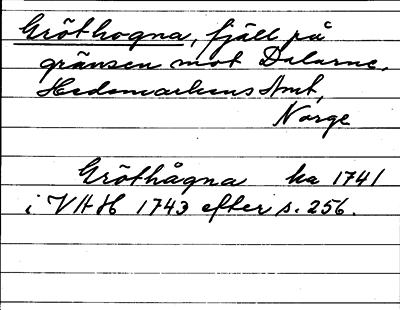 Gröthogna, fjäll på
gränsen mot Dalarne,
Hedemarkens Amt,
Norge
Gröthågna ka 1741
i VHH 1743 efter s. 256.